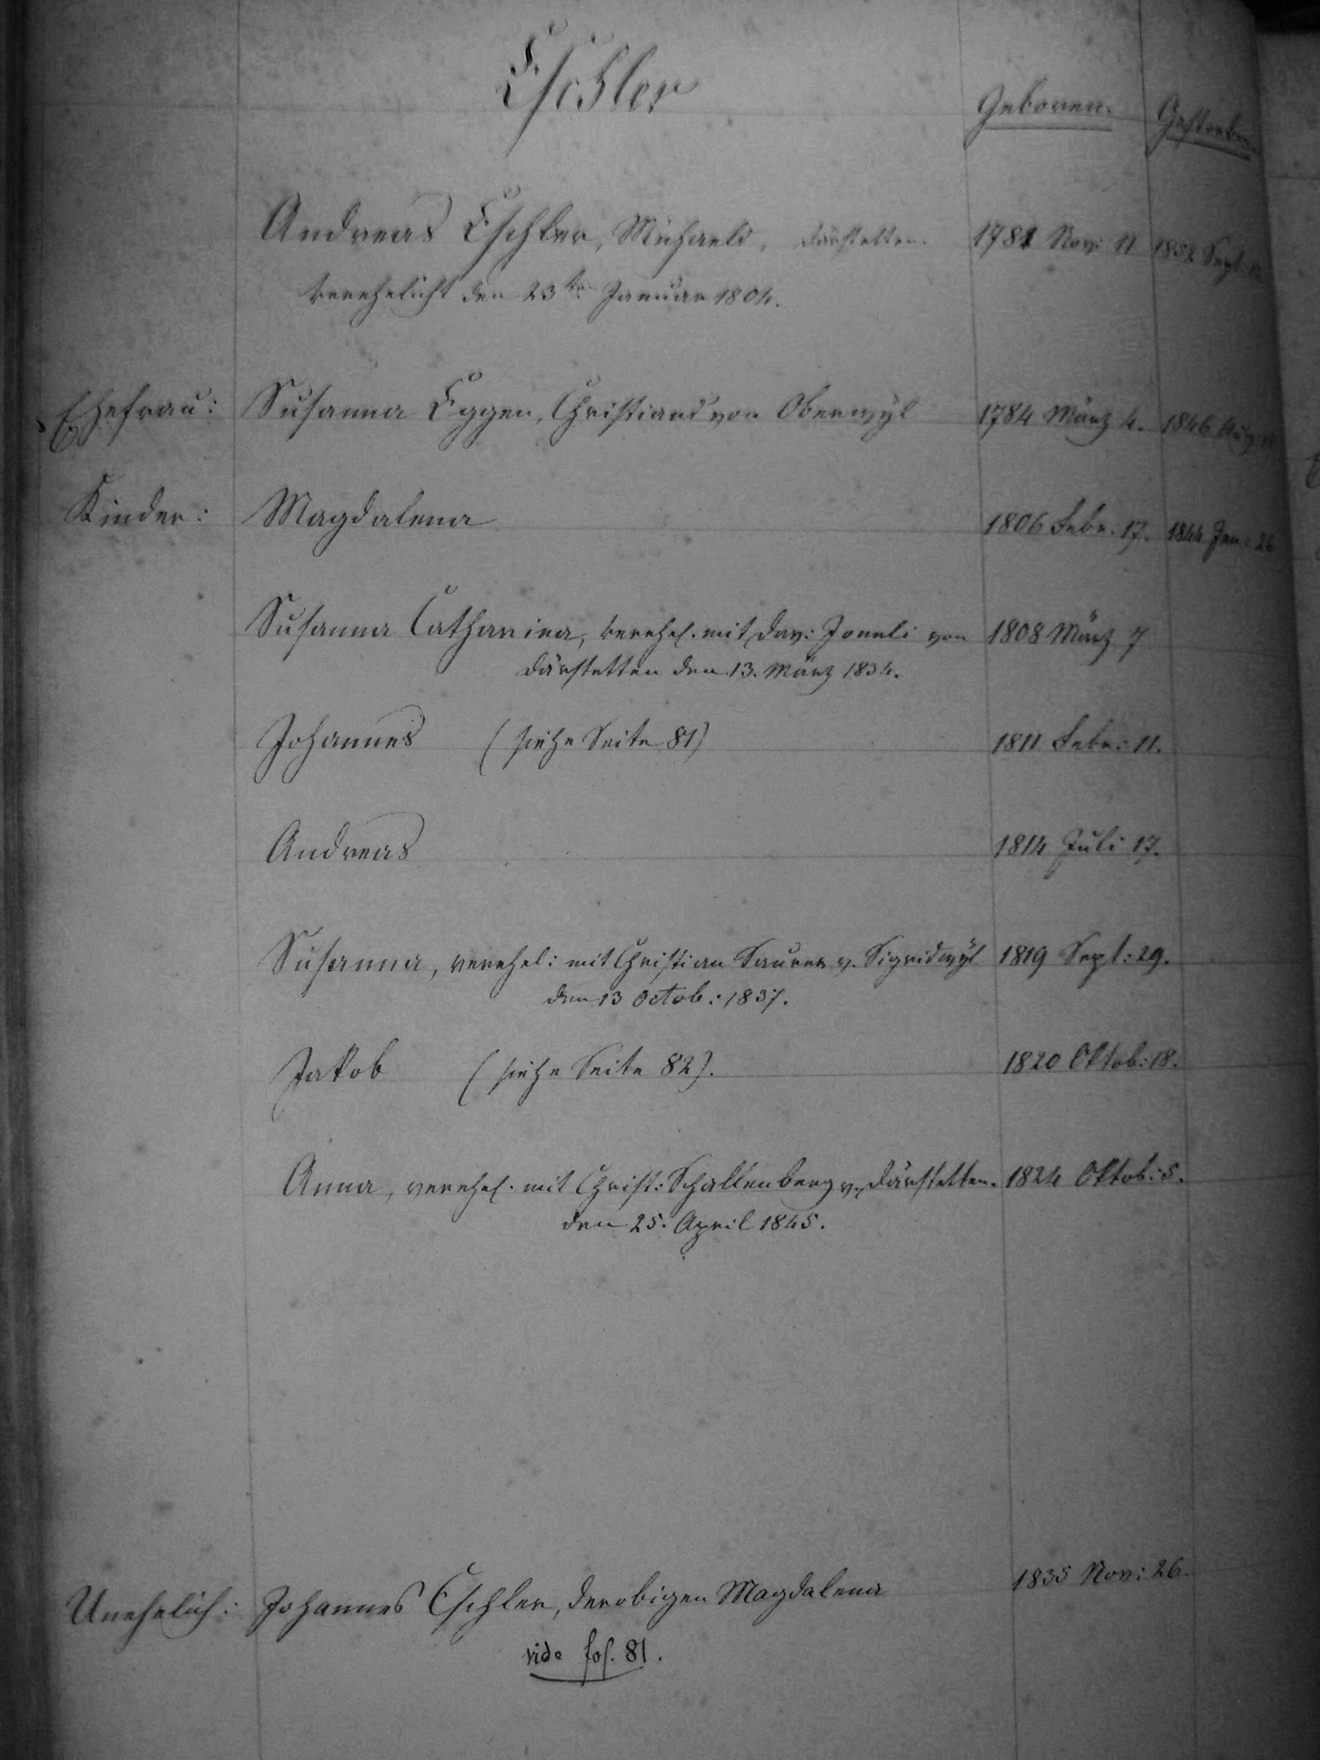 Eschler
Geboren. Gestorben
Andreas Eschler, Michaels, Därstetten. 1781 Nov: 11 1852 Sept:
verehelicht den 23ten Januar 1804.
Ehefrau: Susanna Eggen, Christians von Oberwyl 1784 März 4. 1846 Aug:
Kinder: Magdalena 1806 Febr. 17. 1844 Jan: 26
Susanna Catharina, verehel. mit Dav: Joneli von 1808 März 7
Därstetten den 13. März 1834.
Johannes (siehe Seite 81) 1811 Febr: 11.
Andreas 1814 Juli 17.
Susanna, verehel: mit Christian Saurer v. Sigriswyl 1819 Sept: 29.
den 13 Octob: 1837.
Jakob (siehe Seite 82). 1820 Oktob: 18.
Anna, verehel. mit Christ: Schallenberg v. Därstetten. 1824 Oktob: 5.
den 25. April 1845.
Unehelich: Johannes Eschler, der obigen Magdalena 1835 Nov: 26.
vide fol. 81.